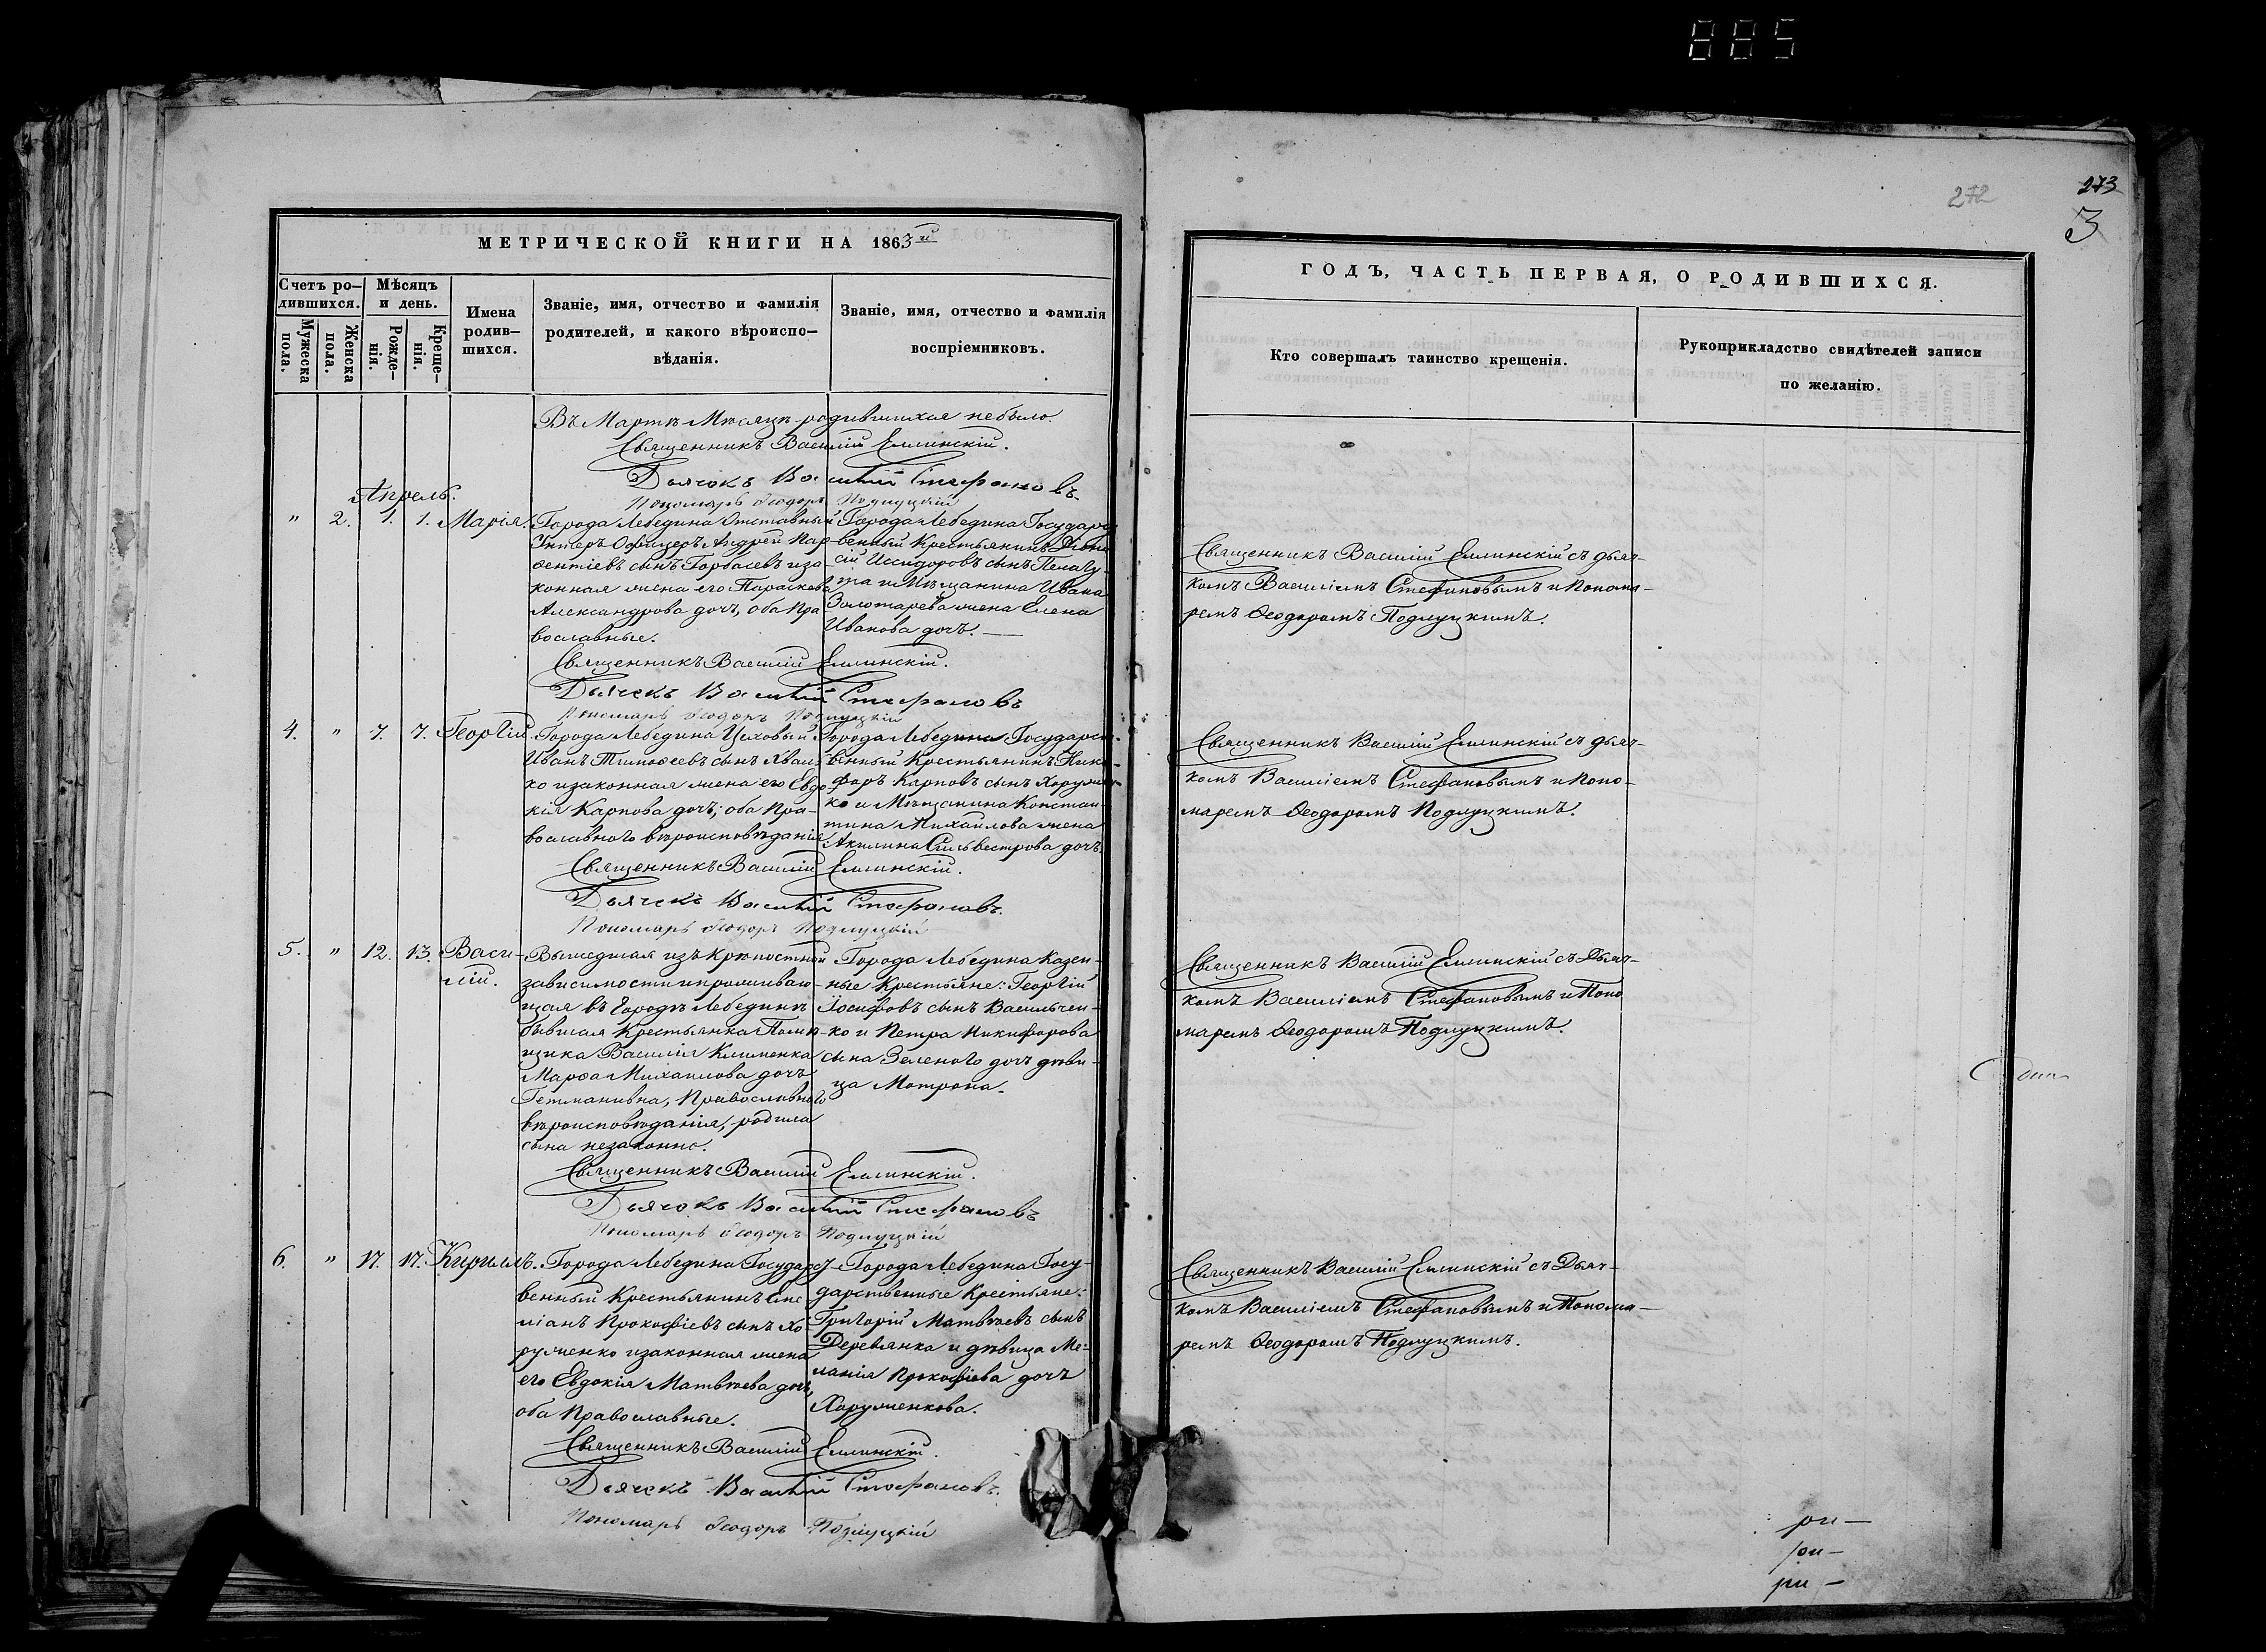 885
272
273
3
МЕТРИЧЕСКОЙ КНИГИ НА 1863й
Счетъ ро-
дившихся.
Мужеска
пола.
Женска
пола.
Мѣсяцъ
и день.
Рожде-
нія.
Креще-
нія.
Имена
родив-
шихся.
Званіе, имя, отчество и фамилія
родителей, и какого вѣроиспо-
вѣданія.
Званіе, имя, отчество и фамилія
воспріемниковъ.
Въ Мартѣ Мѣсяцѣ родившихся небыло.
Священникъ Василій Еллинскій.
Дьячокъ Василій Стефановъ.
Пономарь Ѳеодоръ Подлуцкій
Апрель.
" 2. 1. 1. Марія.
Города Лебедина Отставный
Унтеръ Офицеръ Андрей Пар-
ѳентіевъ сынъ Горбасевъ иза-
конная жена его Параскева
Александрова дочь, оба Пра
вославные.
Города Лебедина Государст
венный Крестьянинъ Діони
сій Исидоровъ сынъ
та и Мѣщанина Ивана
Золотарева жена Елена
Иванова дочь.
Священникъ Василій Еллинскій.
Дьячекъ Василій Стефановъ
Пономарь Ѳеодоръ Подлуцкій
4. " 7. 7. Георгій.
Города Лебедина Цеховый
Иванъ Тимоѳеевъ сынъ
ко изаконная жена его Евдо
кія Карпова дочь; оба Пра-
вославнаго вѣроисповѣданія
Города Лебедина Государст
венный Крестьянинъ Ники
форъ Карповъ сынъ Харужен
ко и Мѣщанина Констан
тина Михаилова жена
Акилина Сильвестрова дочь.
Священникъ Василій Еллинскій.
Дьячекъ Василій Стефановъ.
Пономарь Ѳеодоръ Подлуцкій
5. " 12. 13. Васи-
лій.
Вышедшая изъ Крѣпостной
зависимости ипроживаю-
щая въ Городѣ Лебединѣ
бывшая Крестьянка Помѣ-
щика Василія Клименка
Марѳа Михаилова дочь
Гетманивна, Православнаго
вѣроисповѣданія, родила
сына незаконно.
Города Лебедина Казен-
ные Крестьяне: Георгій
Іосифовъ сынъ Васильчен-
ко и Петра Никифорова
сына Зеленого дочь дѣви-
ца Мотрона.
Священникъ Василій Еллинскій.
Дьячокъ Василій Стефановъ
Пономарь Ѳеодоръ Подлуцкій
6 " 17. 17. Кириллъ.
Города Лебедина Государст-
венный Крестьянинъ Еме
ліанъ Прокофіевъ сынъ Ха
руженко изаконная жена
его Евдокія Матвѣева дочь,
оба Православные.
Города Лебедина Госу-
дарственные Крестьяне:
Григорій Матвѣевъ сынъ
Деревянка и дѣвица Ме-
ланія Прокофіева дочь
Харуженкова.
Священникъ Василій Еллинскій.
Дьячекъ Василій Стефановъ.
Пономарь Ѳеодоръ Подлуцкій
ГОДЪ, ЧАСТЬ ПЕРВАЯ, О РОДИВШИХСЯ.
Кто совершалъ таинство крещенія.
Рукоприкладство свидѣтелей записи
по желанію.
Священникъ Василій Еллинскій съ дьяч-
комъ Василіемъ Стефановымъ и Понома-
ремъ Ѳеодоромъ Подлуцкимъ.
Священникъ Василій Еллинскій съ дьяч-
комъ Василіемъ Стефановымъ и Поно-
маремъ Ѳеодоромъ Подлуцкимъ.
Священникъ Василій Еллинскій съ Дьяч-
комъ Василіемъ Стефановымъ и Поно
маремъ Ѳеодоромъ Подлуцкимъ.
Священникъ Василій Еллинскій съ Дьяч-
комъ Василіемъ Стефановымъ и Понома-
ремъ Ѳеодоромъ Подлуцкимъ.
ри-
ри-
ри-